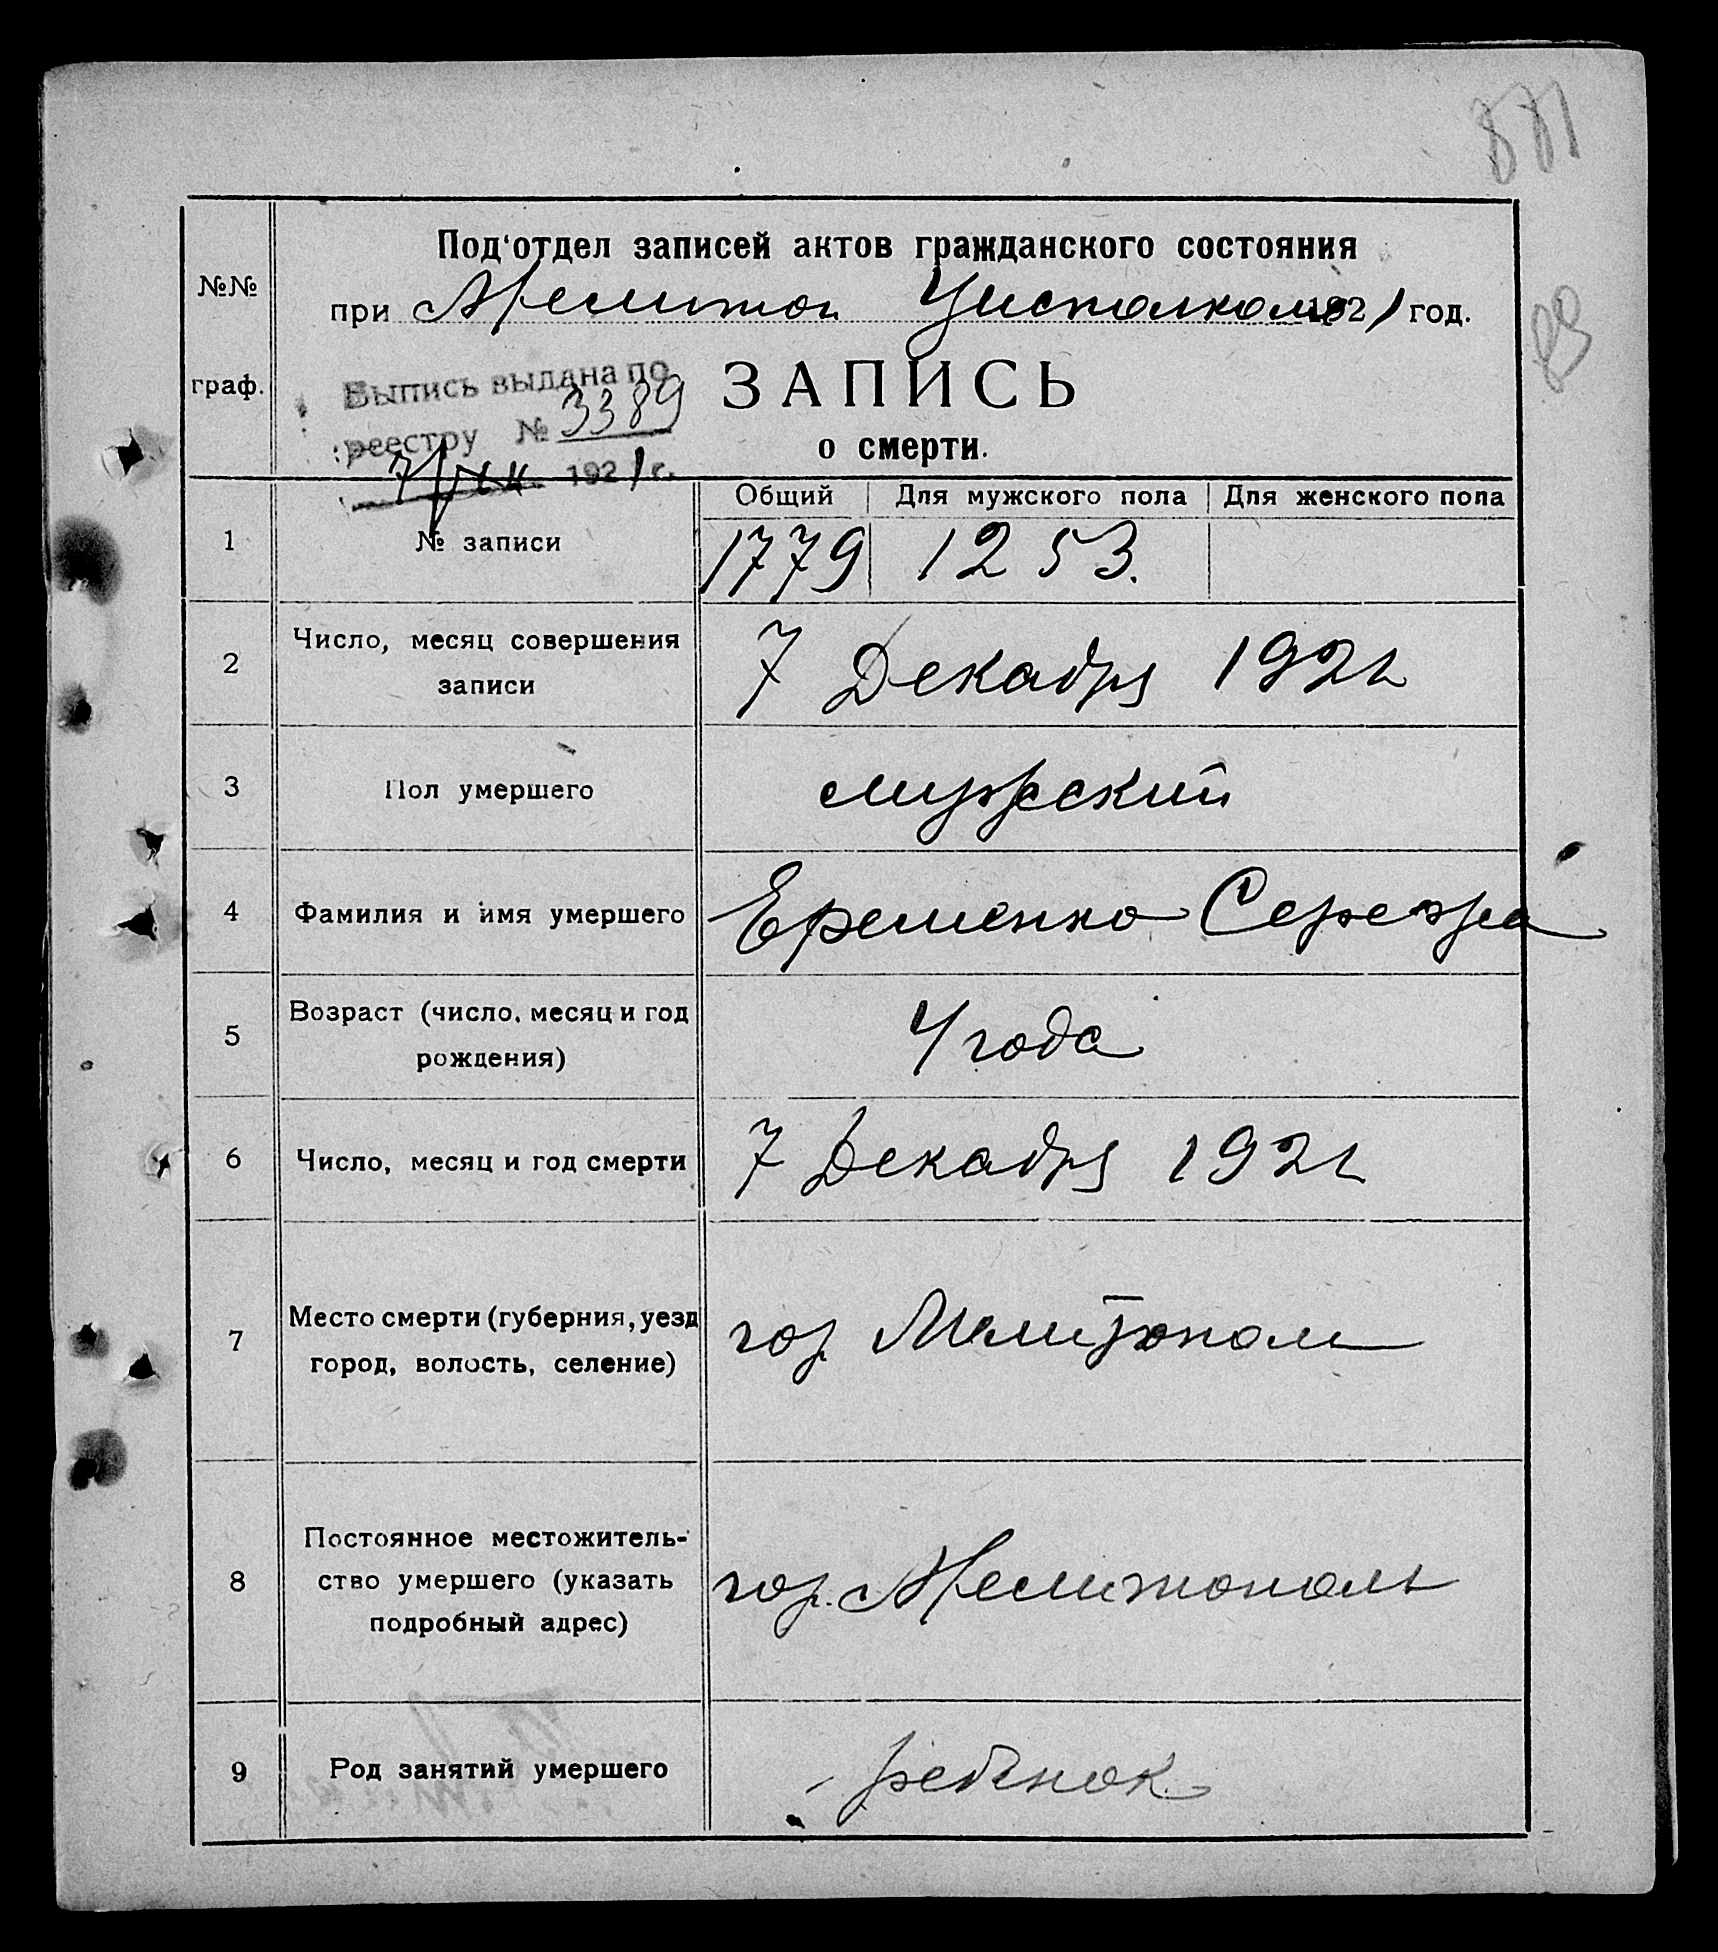 881
Под‘отдел записей актов гражданского состояния
при Мелитоп Уисполкоме 1921 год.
89
№№
граф.
Выпись выдана по
реестру № 3389
7/XII 1921 г.
ЗАПИСЬ
о смерти.
Общий Для мужского пола Для женского пола
1 № записи 1779 1253.
2 Число, месяц совершения
записи 7 Декабря 1921
3 Пол умершего мужский
4 Фамилия и имя умершего Еременко Сережа
5 Возраст (число, месяц и год
рождения) 4 года
6 Число, месяц и год смерти 7 Декабря 1921
7 Место смерти (губерния, уезд
город, волость, селение) гор Мелитополь
8 Постоянное местожитель-
ство умершего (указать
подробный адрес) гор. Мелитополь
9 Род занятий умершего ребенок